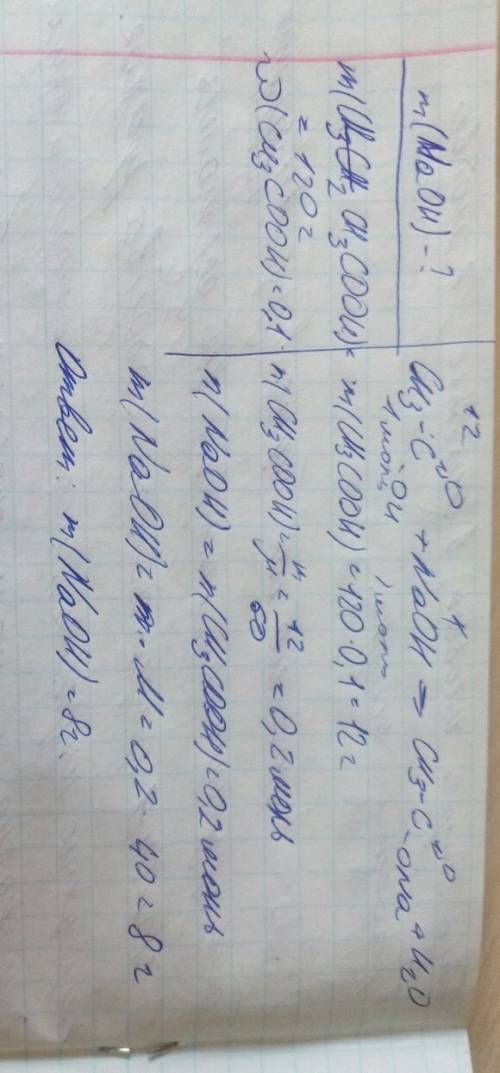 m(NaOH) - ?
m(CH₃COOH) =
= 120 г
ω(CH₃COOH) = 0,1
12 x
CH₃-C=O -OH + NaOH → CH₃-C=O -ONa + H₂O
1 моль 1 моль
m(CH₃COOH) = 120 · 0,1 = 12 г
n(CH₃COOH) = m/M = 12/60 = 0,2 моль
n(NaOH) = n(CH₃COOH) = 0,2 моль
m(NaOH) = n · M = 0,2 · 40 = 8 г
Ответ: m(NaOH) = 8 г.